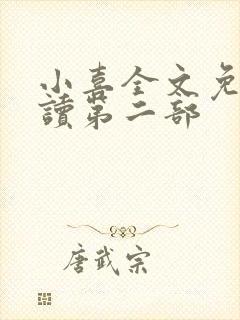 小喜全文免
讀第二部
唐武宗